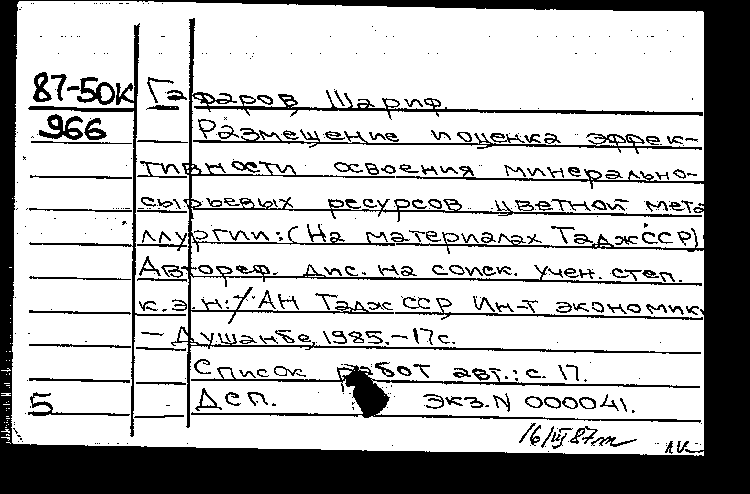 87-50К Гафаров Шариф.
966 Размещение и оценка эффек-
тивности освоения минерально-
сырьевых ресурсов цветной мета
ллургии: (На материалах ТаджССР):
Автореф. дис. на соиск. учен. степ.
к.э.н.: / АН ТаджССР Ин-т экономик
– Душанбе, 1985.–17с.
Список работ авт.: с. 17.
5 Дсп. экз. N 000041.
16/III 87